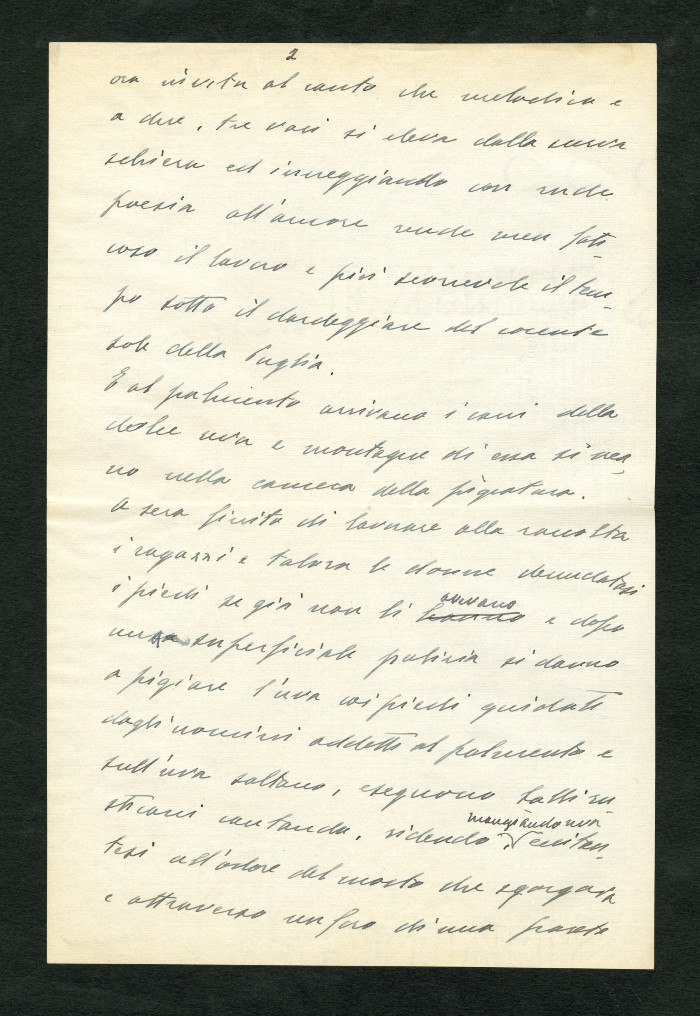 2
ora invita al canto che melodico e
a due, tre voci si eleva dalla
schiera ed inneggiando con rude
poesia all'amore rende men fati-
coso il lavoro e più scorrevole il tem-
po sotto il dardeggiare del cocente
sole della Puglia.
E al palmento arrivano i carri della
dolce uva e montagne di essa si
no nella camera della pigiatura.
A sera finito di lavorare alla raccolta
i ragazzi e talora le donne denudatasi
i piedi se già non li hanno avevano e dopo
una superficiale pulizia si danno
a pigiare l'uva coi piedi guidati
dagli uomini addetti al palmento e
sull'uva saltano, eseguono balli ru-
sticani cantando, ridendo, mangiando uva
tesi all'odore del mosto che sgorga
e attraverso un foro di una parete